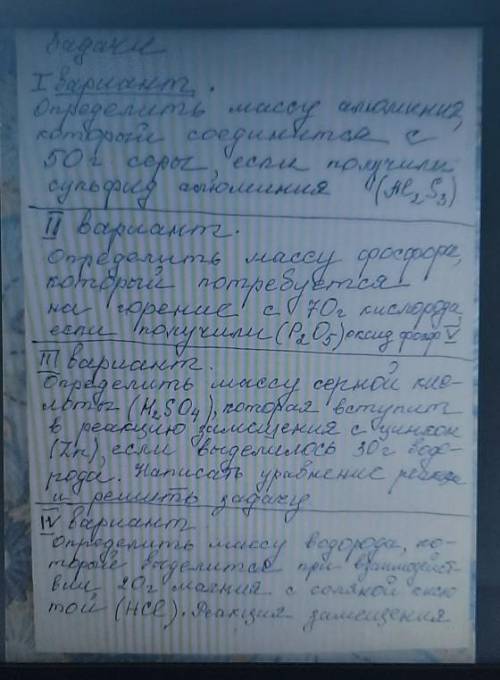 Задачи
I вариант.
Определить массу алюминия,
который соединится с
50 г серы, если получили
сульфид алюминия (Al2S3)
II вариант.
Определить массу фосфора,
который потребуется
на горение с 70 г кислорода,
если получили (P2O5) оксид фосф V
III вариант.
Определить массу серной кис-
лоты (H2SO4), которая вступит
в реакцию замещения с цинком
(Zn), если выделилось 30 г водо-
рода. Написать уравнение реакции
и решить задачу
IV вариант
Определить массу водорода, ко-
торый выделится при взаимодейст-
вии 20 г магния с соляной кисло
той (HCl). Реакция замещения